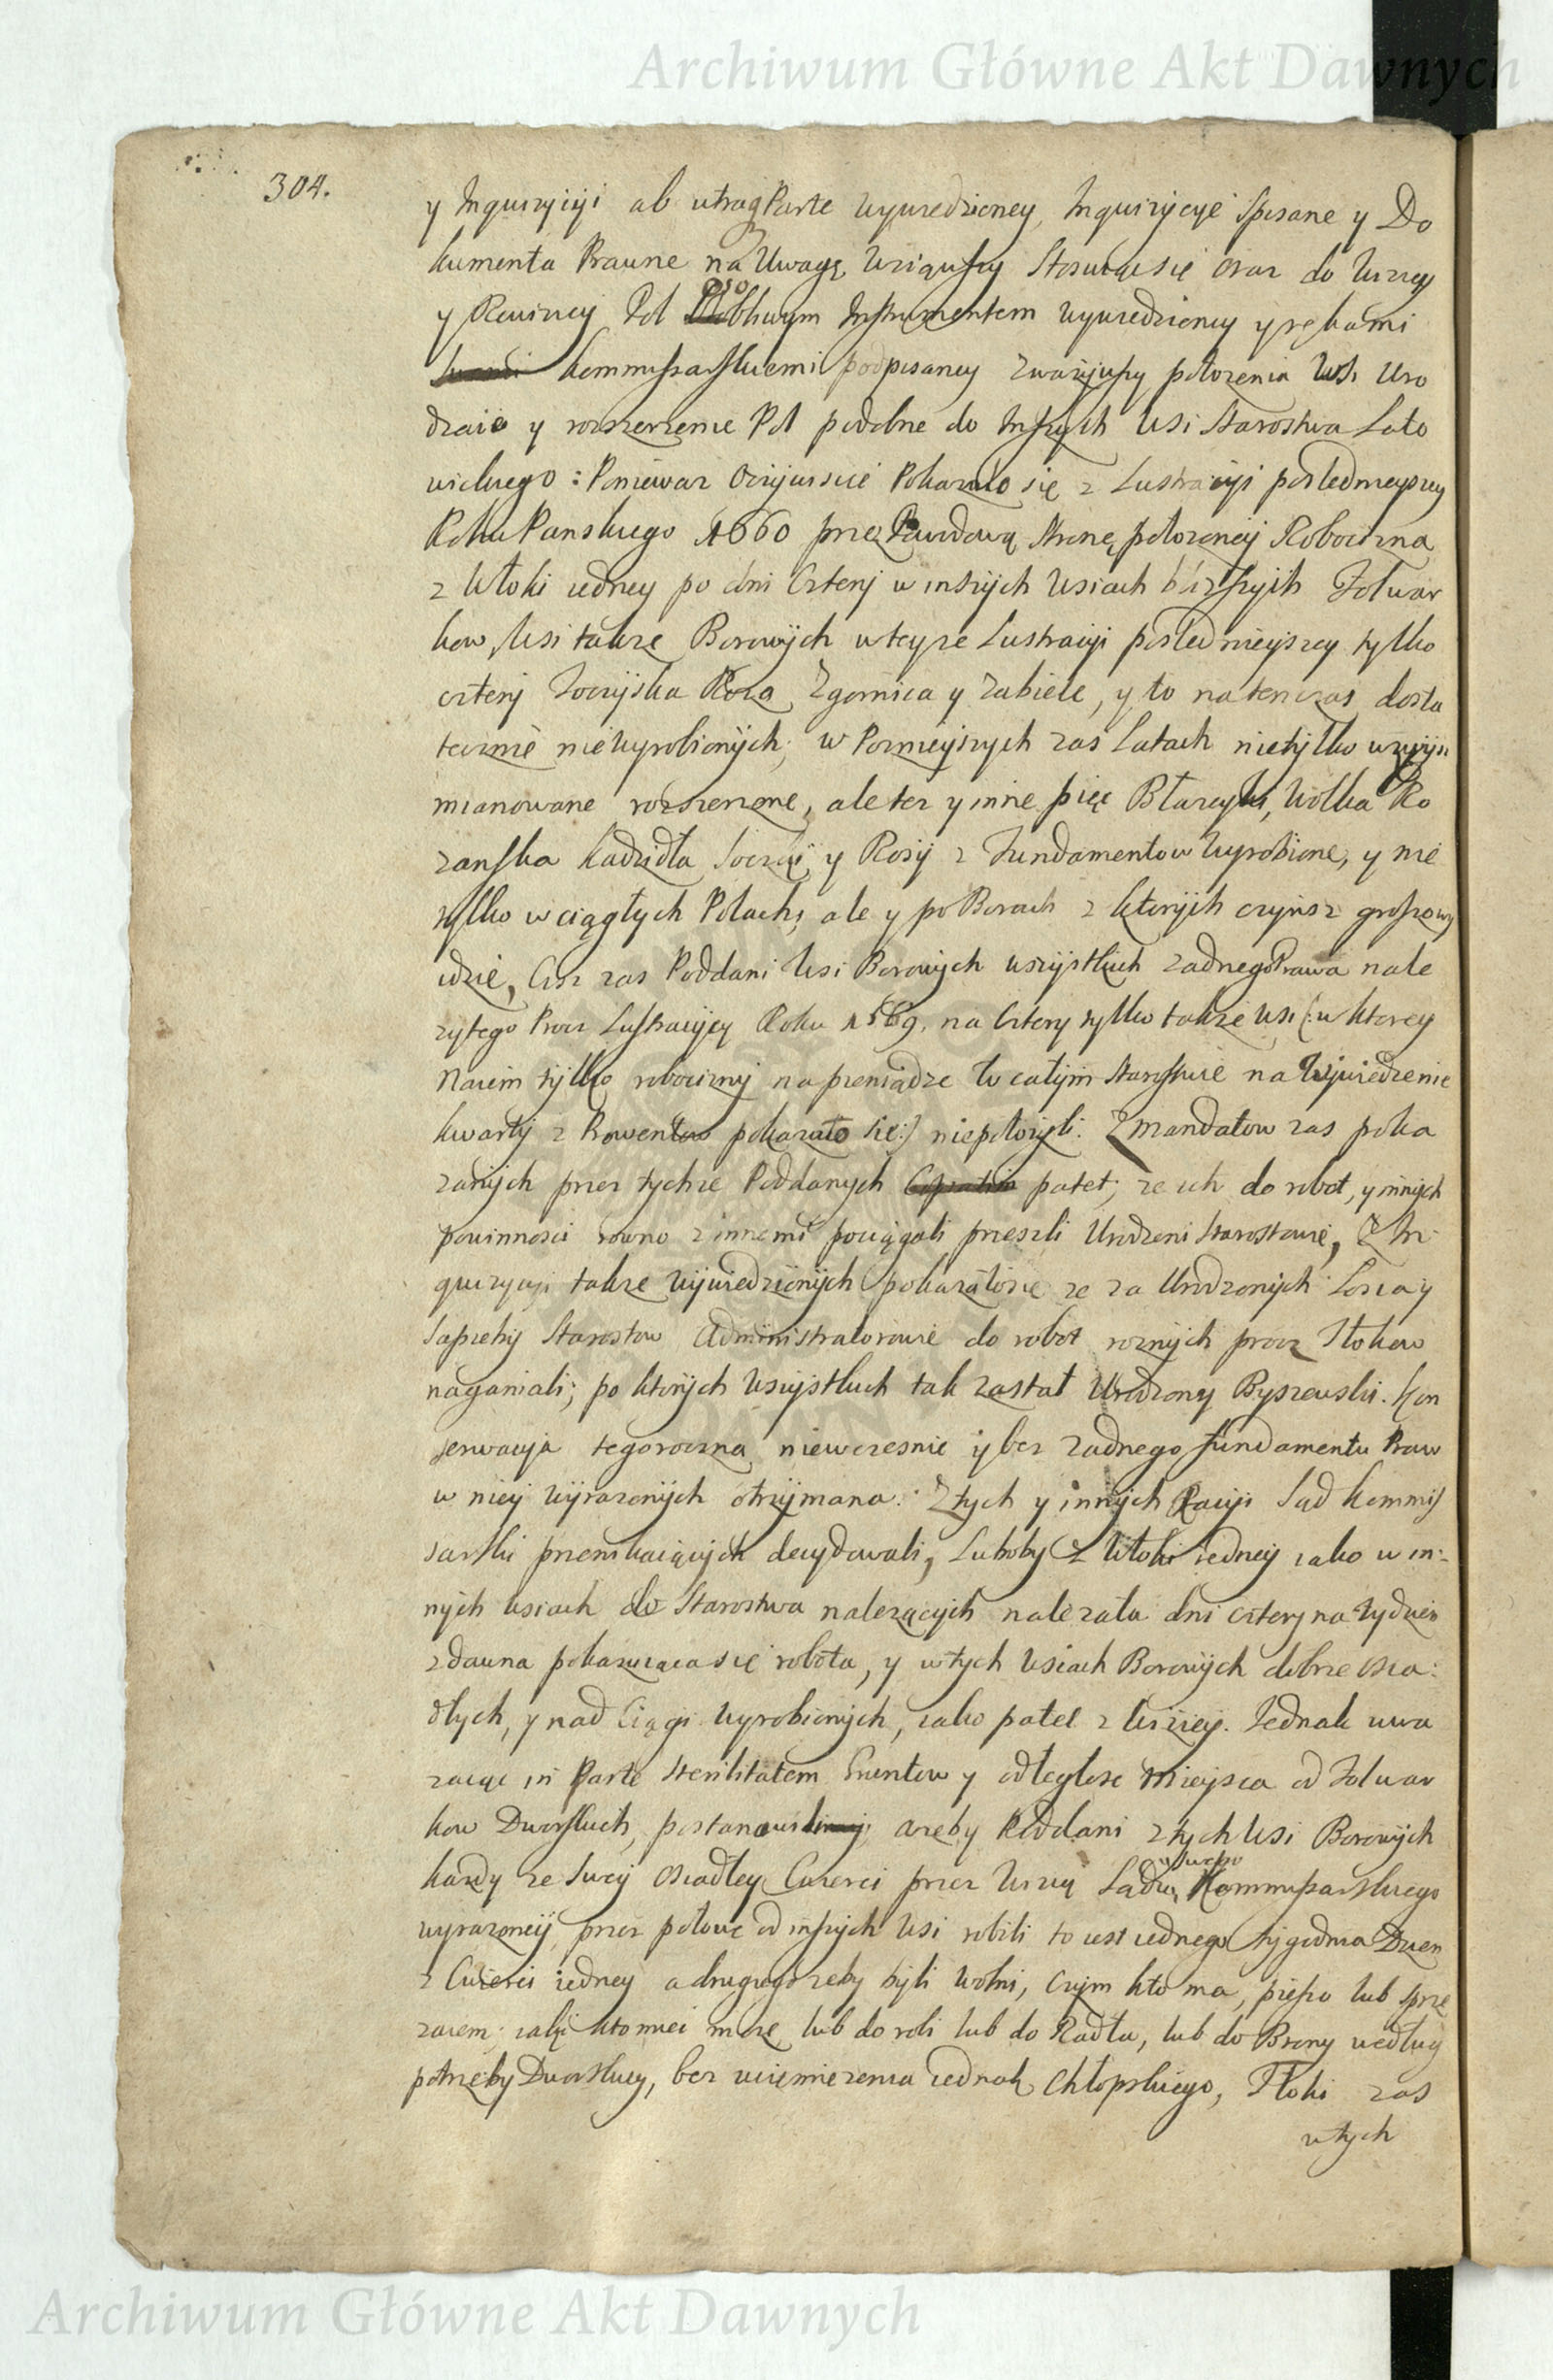 Archiwum Główne Akt Dawnych
304.
y Inquizycyi ab utraq Parte wywiedzioney, Inquizycye spisane y Do
kumenta Prawne na Uwagę wziąwszy stosuiąc się oraz do wizyi
y Rewizyey Pol oso bliwym Instrumentem wywiedzioney y rękami
kommissarskiemi podpisaney zważywszy położenia wsi Uro
dzaie y rozszerzenie Pol podobne do Inszych wsi Starostwa Lato
wickiego : Ponieważ Oczywiscie Pokazało się z Lustracyi poslednieyszey
Roku Panskiego 1660 przez Powodową stronę położoney Robocizna
z włoki iedney po dni Cztery w inszych wsiach bliższych Folwar
kow, wsi także Borowych w teyże Lustracyi poslednieyszey tylko
cztery Zoczyska Roza Zgornica y Zabiele, y to natenczas dosta
tecznie niewyrobionych; w Poznieyszych zas Latach nietylko wzwysz
mianowane rozszerzone, ale tez y inne pięc Błazeyki, Wolka Ro
zanska Kadzidła y Rosy z Fundamentow wyrobione, y nie
tylko w ciągłych Polach, ale y po Borach z ktorych czynsz groszowy
idzie, Ciż zas Poddani wsi Borowych wszystkich zadnego Prawa nale
zytego procz Lustracyey Roku 1569. na Cztery tylko takze wsi (: w ktorey
Naiem tylko robocizny na pieniądze w całym Starostwie na wywiedzenie
kwarty z Prowentow pokazało się :) niepołozyli. Z mandatow zas poka
zanych przez tychze Poddanych patet, ze ich do robot, y innych
powinnosci rowno z innemi pociągali przeszli Urodzeni Starostowie, Z In
quizycyi takze wywiedzionych pokazało się ze za Urodzonych Łosia y
Sapiehy Starostow Administratorowie do robot roznych procz Tłokow
naganiali; po ktorych wszystkich tak zastał Urodzony Byszewski. Kon
serwacyja tegoroczna niewczesnie y bez zadnego fundamentu Praw
w niey wyrazonych otrzymana. Z tych y innych Racyi Sąd Kommis
sarski przenikaiących decydowali, Luboby z Włoki iedney iako w in:
nych wsiach do Starostwa nalezących nalezała dni cztery na tydzien
zdawna pokazuiąca się robota, y w tych wsiach Borowych dobrze osia:
dłych, y nad Ciągi wyrobionych, iako patet z wiziey. Jednak uwa
zaiąc in Parte sterilitatem Gruntow y odległosc Mieysca od Folwar
kow Dworskich, postanowili azeby Poddani z tych wsi Borowych
kazdy ze swey osiadłey Cwierci przez wizią Sądu Kommissarskiego
wyrazoney, przez połowe od inszych wsi robili to iest iednego tygodnia Dzien
z Cwierci iedney a drugiego zeby byli wolni, czym kto ma, pieszo lub sprzę
zaiem; iaki kto miec moze lub do roli lub do Radła, lub do Brony według
potrzeby Dworskiey, bez uciemiezenia iednak Chłopskiego, Tłoki zas
w tych
Archiwum Główne Akt Dawnych